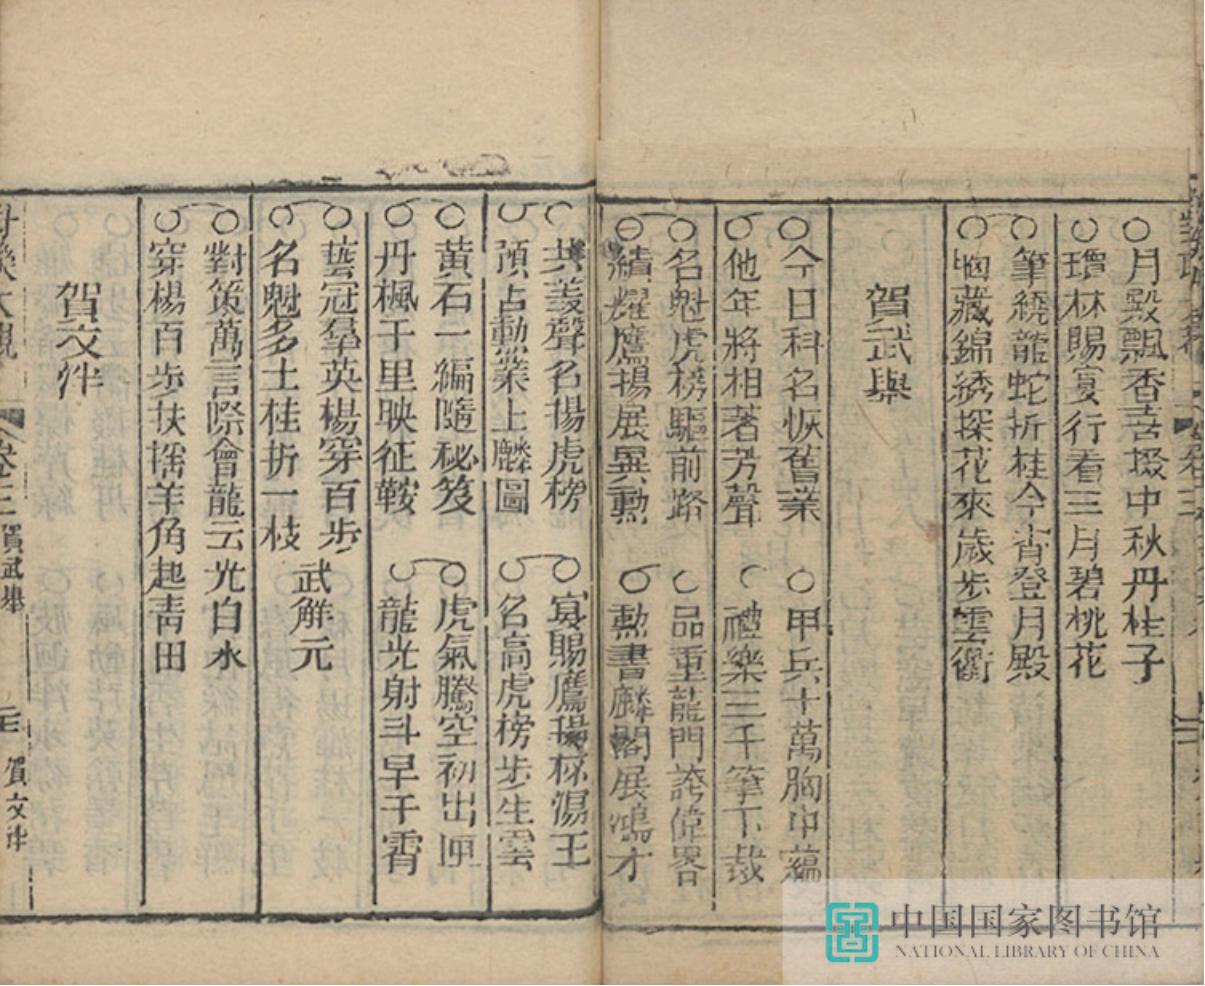 月殿飄香吉掇中秋丹桂子
瓊林賜宴行看三月碧桃花
筆繞龍蛇折桂今宵登月殿
胸藏錦綉探花來歲步雲衢
賀武舉
今日科名恢舊業
他年將相著芳聲
甲兵十萬胸中蘊
禮樂三千筆下裁
名魁虎榜驅前路
績耀鷹揚展異勳
品重龍門誇偉畧
勳書麟閣展鴻才
共羨聲名揚虎榜
預占勳業上麟圖
宴賜鷹揚杯湯玉
名高虎榜步生雲
黃石一編隨秘笈
丹楓千里映征鞍
虎氣騰空初出匣
龍光射斗早干霄
藝冠羣英楊穿百步
名魁多士桂折一枝
武解元
對策萬言際會龍云光白水
穿楊百步扶搖羊角起靑田
賀文泮
卷三
賀武舉
賀文泮
中国国家图书馆
NATIONAL LIBRARY OF CHINA